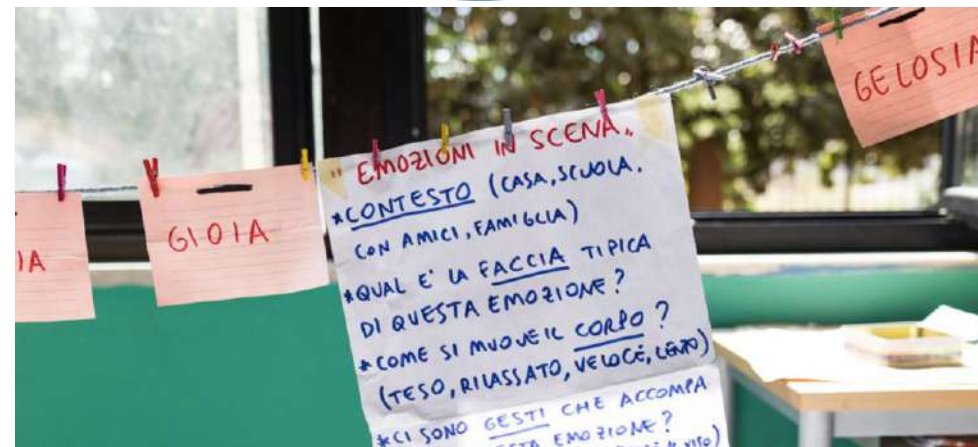 IA
GIOIA
"EMOZIONI IN SCENA"
*CONTESTO (CASA, SCUOLA,
CON AMICI, FAMIGLIA)
*QUAL E' LA FACCIA TIPICA
DI QUESTA EMOZIONE?
*COME SI MUOVE IL CORPO?
(TESO, RILASSATO, VELOCE, LENTO)
*CI SONO GESTI CHE ACCOMPA
STA EMOZIONE?
VISO)
GELOSIA